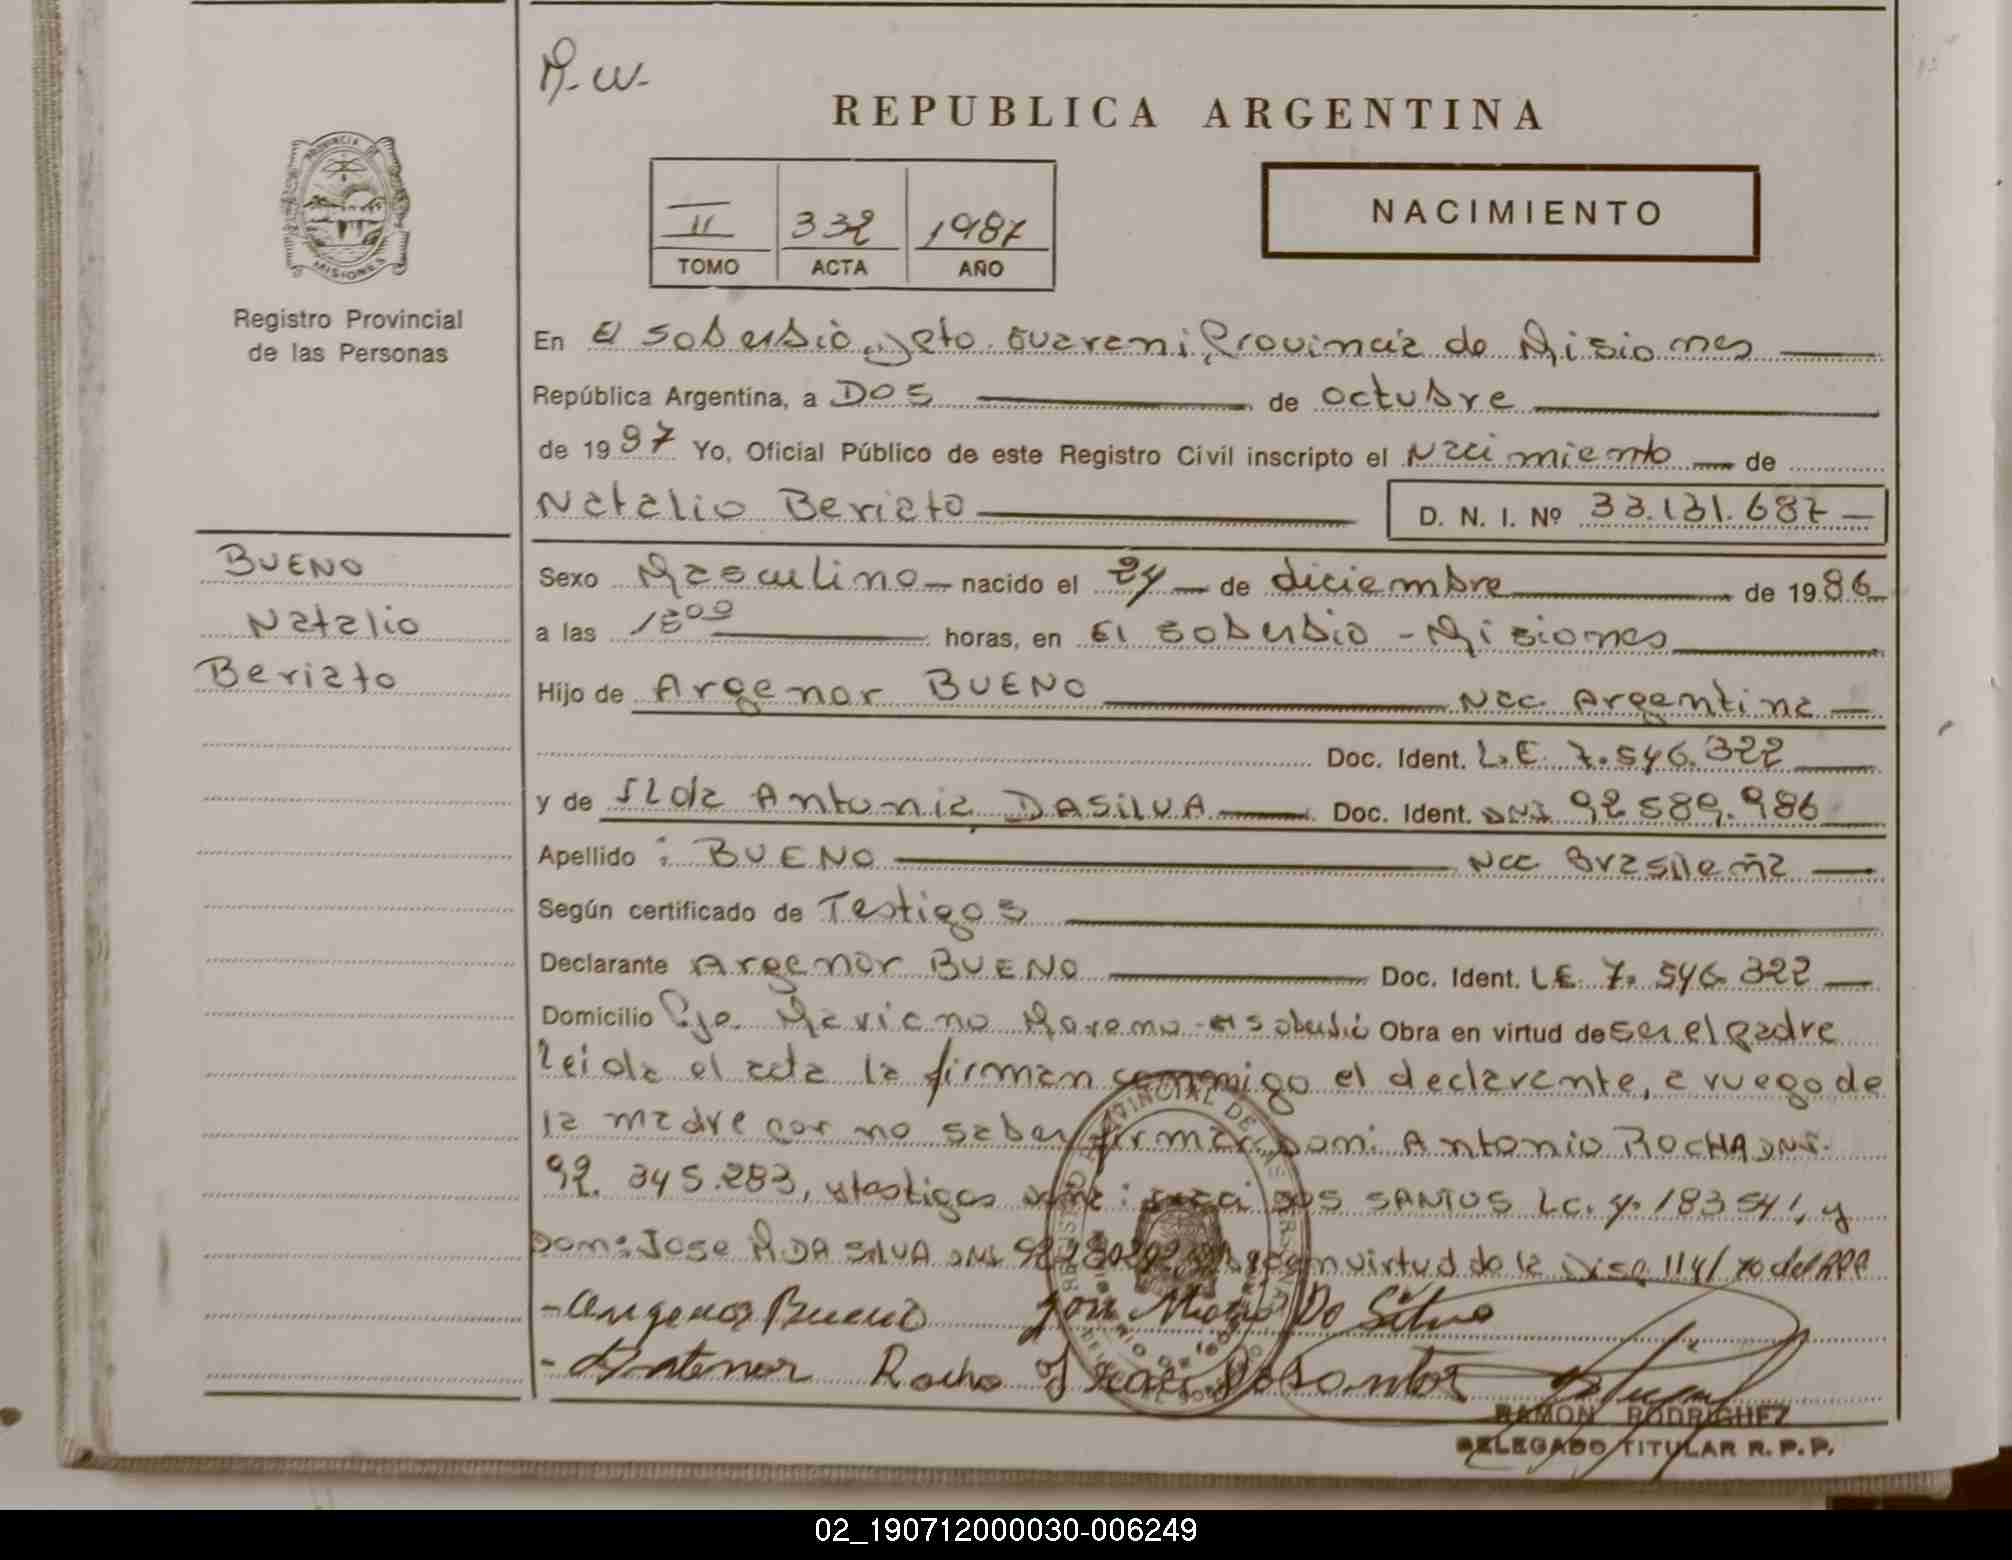 M. W-
REPUBLICA ARGENTINA
PROVINCIA DE
MISIONES
Registro Provincial
de las Personas
II 332 1987
TOMO ACTA AÑO
NACIMIENTO
En El Soberbio, Dpto. Guarani, Provincia de Misiones
República Argentina, a DOS de octubre
de 1987 Yo, Oficial Público de este Registro Civil inscripto el Nacimiento de
Natalio Beriato
D. N. I. Nº 33.131.687
BUENO
Natalio
Beriato
Sexo Masculino nacido el 24 de diciembre de 1986
a las 1800 horas, en El Soberbio - Misiones
Hijo de Argenor BUENO Nac Argentina
Doc. Ident. L.E. 7.546.322
y de Antonia DASILVA Doc. Ident. DNI 92 589.986
Apellido : BUENO Nac Brasileña
Según certificado de Testigos
Declarante Argenor BUENO Doc. Ident. L.E. 7.546.322
Domicilio Pje. Mariano Moreno - El Soberbio Obra en virtud de ser el padre
Leida el acta la firman conmigo el declarante, a ruego de
la madre por no saber firmar, Don: Antonio ROCHA DNI.
92. 345.283, y testigos DOS SANTOS L.C. 4.183541, y
Don: Jose M DA SILVA DNI en virtud de la Disp. 114/70 del RPP
- Argenor Bueno José Maria Da Silva
- Antenor Rocha Dosantos
RAMON RODRIGUEZ
DELEGADO TITULAR R. P. P.
02_190712000030-006249